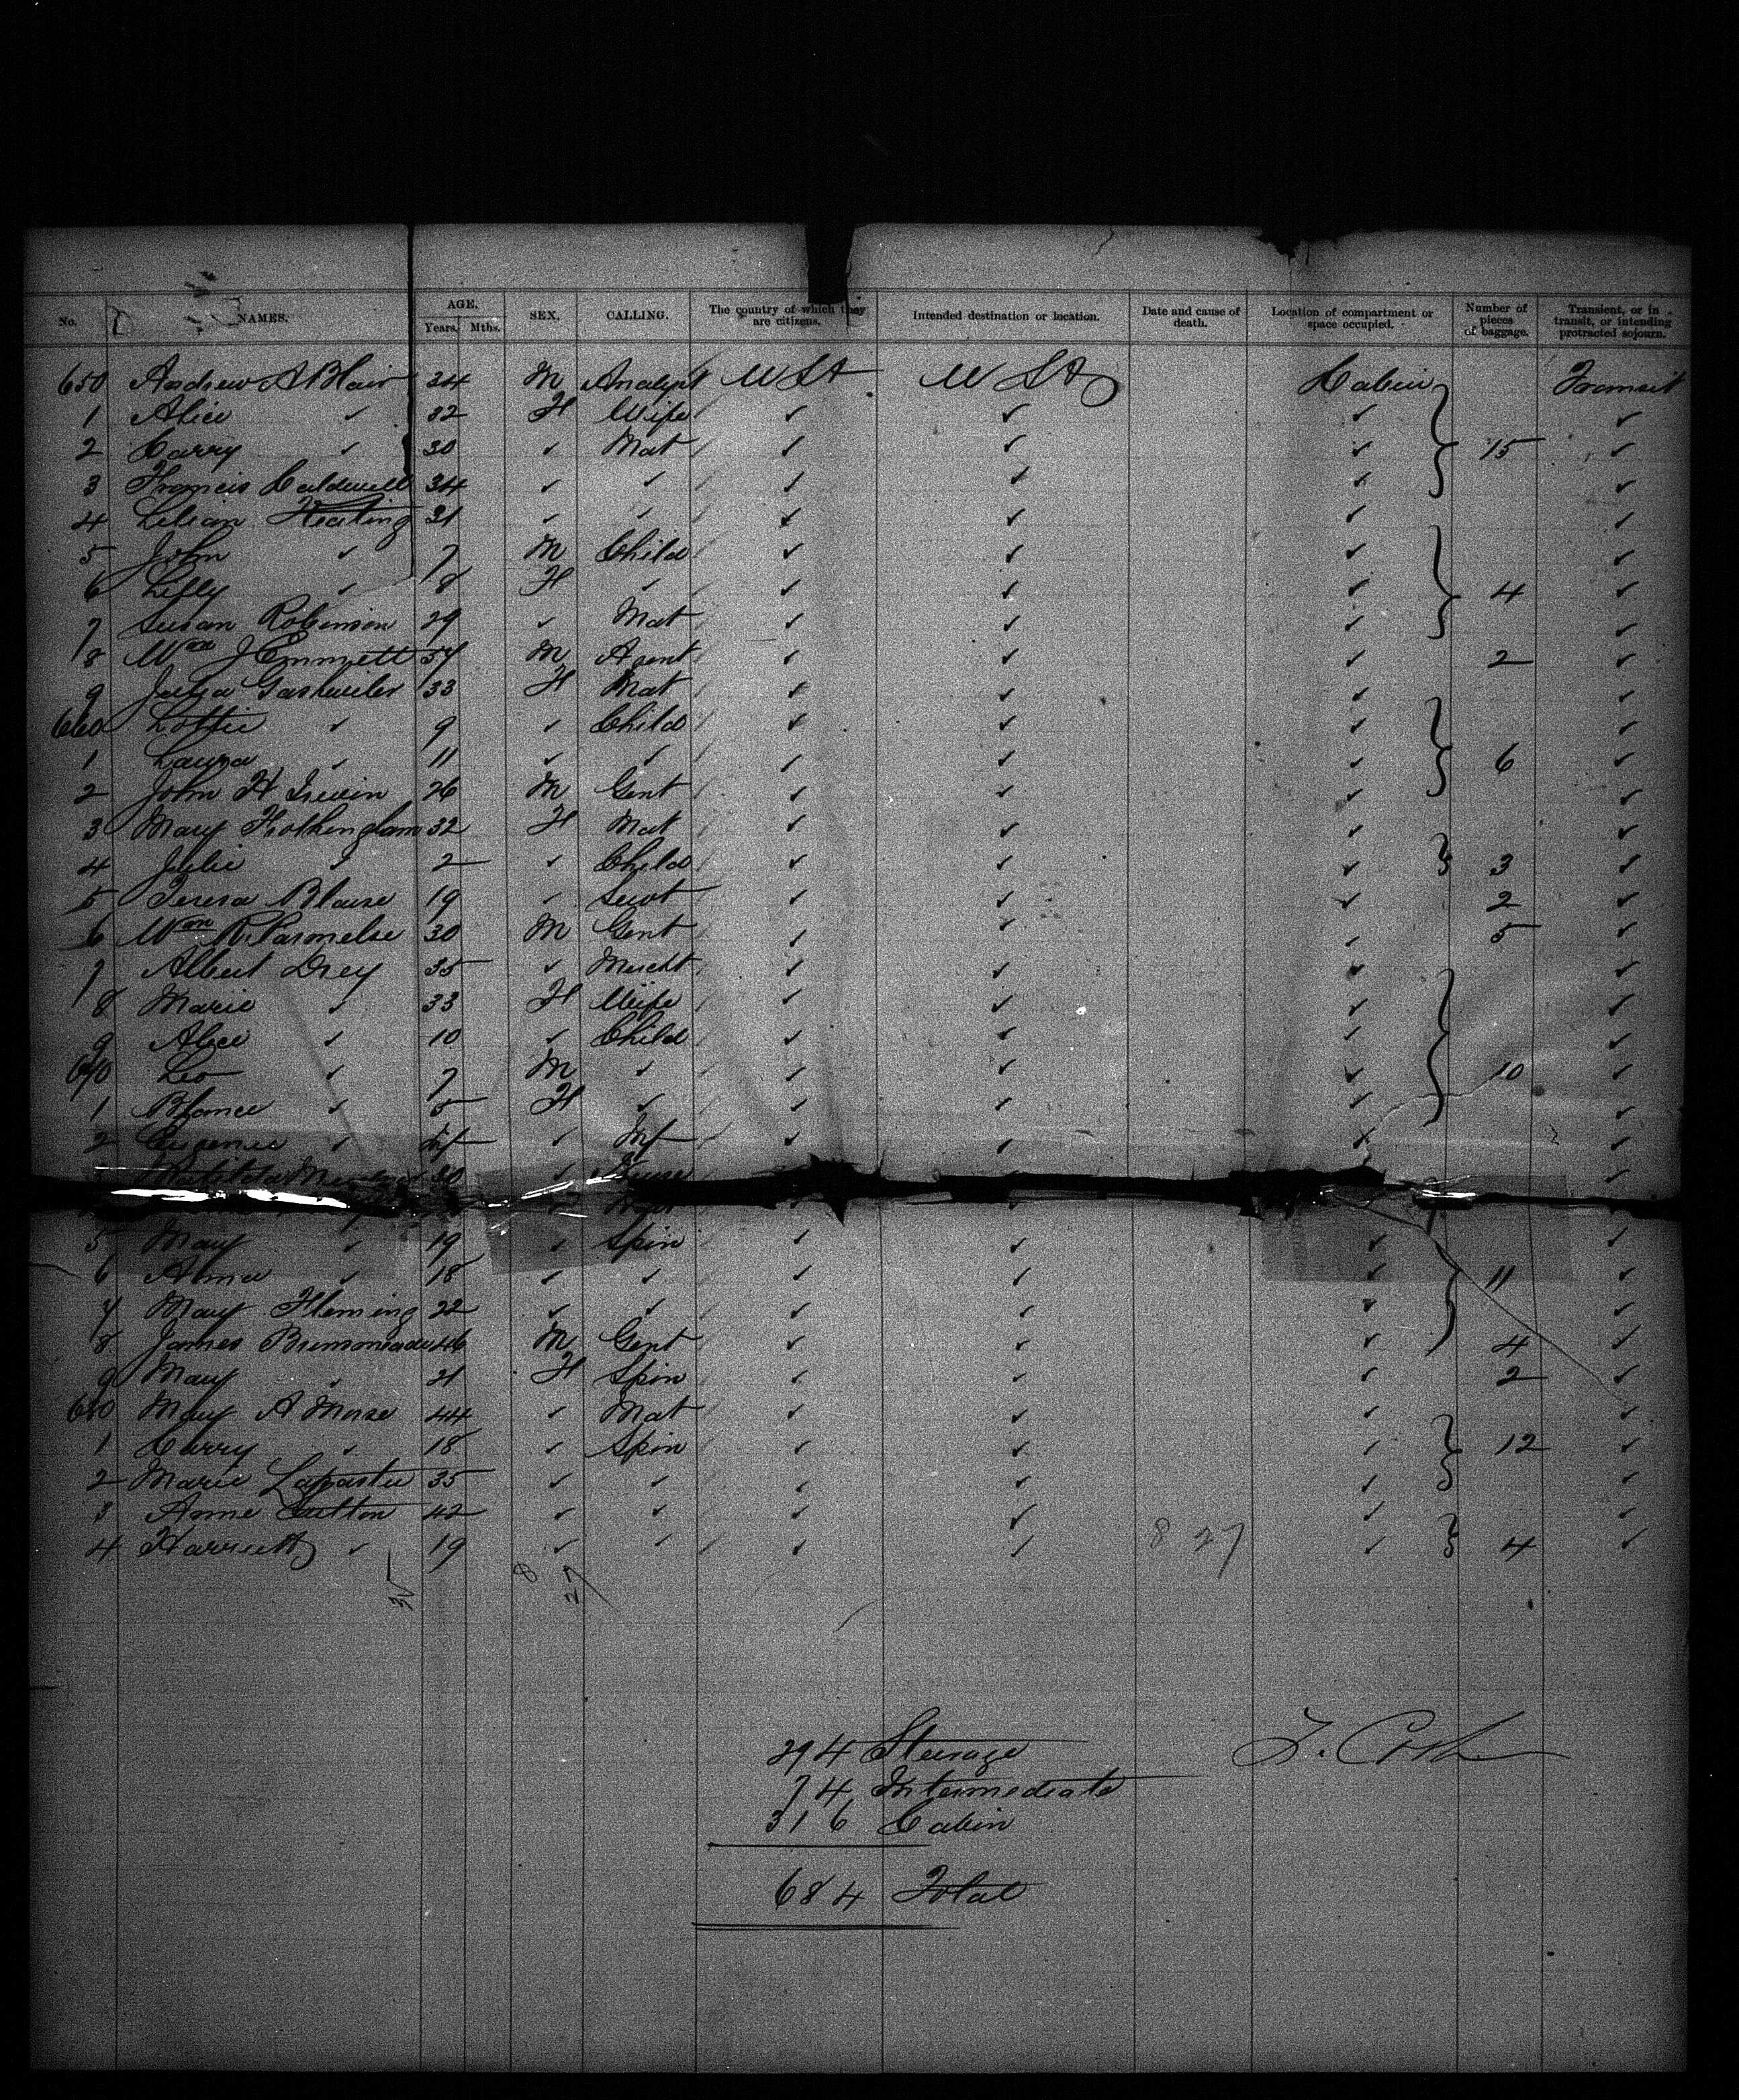 No. NAMES. AGE. Years. Mths. SEX. CALLING. The country of which they are citizens. Intended destination or location. Date and cause of death. Location of compartment or space occupied. Number of pieces of baggage. Transient, or in transit, or intending protracted sojourn.
650 Andrew A Blair 34 M Analyst U St U St Cabin Transit
1 Alice ✓ 32 F Wife ✓ ✓ ✓ ✓
2 Carry ✓ 30 ✓ Mat ✓ ✓ ✓ 15 ✓
3 Francis Caldwell 34 ✓ ✓ ✓ ✓ ✓ ✓
4 Lilian Keating 31 ✓ ✓ ✓ ✓ ✓ ✓
5 John ✓ 7 M Child ✓ ✓ ✓ ✓
6 Lilly ✓ 8 F ✓ ✓ ✓ ✓ 4 ✓
7 Susan Robinson 29 ✓ Mat ✓ ✓ ✓ ✓
8 Wm J Emmett 57 M Agent ✓ ✓ ✓ 2 ✓
9 Julia Gashwiler 33 F Mat ✓ ✓ ✓ ✓
660 Lottie ✓ 9 ✓ Child ✓ ✓ ✓ ✓
1 Laura ✓ 11 ✓ ✓ ✓ ✓ ✓ 6 ✓
2 John H Irwin 26 M Gent ✓ ✓ ✓ ✓
3 Mary Frothingham 32 F Mat ✓ ✓ ✓ ✓
4 Julie ✓ 2 ✓ Child ✓ ✓ ✓ 3 ✓
5 Teresa Blaise 19 ✓ Sevt ✓ ✓ ✓ 2 ✓
6 Wm R Parmelee 30 M Gent ✓ ✓ ✓ 5 ✓
7 Albert Drey 35 ✓ Mercht ✓ ✓ ✓ ✓
8 Marie ✓ 33 F Wife ✓ ✓ ✓ ✓
9 Alice ✓ 10 ✓ Child ✓ ✓ ✓ ✓
670 Leo ✓ 7 M ✓ ✓ ✓ ✓ 10 ✓
1 Blance ✓ 5 F ✓ ✓ ✓ ✓ ✓
2 Eugenie ✓ ✓ Inf ✓ ✓ ✓ ✓
30 ✓ Nurse ✓
5 May ✓ 19 ✓ Spin ✓ ✓ ✓ ✓
6 Alma ✓ 18 ✓ ✓ ✓ ✓ ✓ 11 ✓
7 Mary Fleming 22 ✓ ✓ ✓ ✓ ✓ ✓
8 James 46 M Gent ✓ ✓ ✓ 4 ✓
9 Mary ✓ 21 F Spin ✓ ✓ ✓ 2 ✓
680 Mary A Morse 44 ✓ Mat ✓ ✓ ✓ ✓
1 Carry ✓ 18 ✓ Spin ✓ ✓ ✓ 12 ✓
2 Marie 35 ✓ ✓ ✓ ✓ ✓ ✓
3 Anne Sutton 42 ✓ ✓ ✓ ✓ ✓ ✓
4 Harriett ✓ 19 ✓ ✓ ✓ ✓ 8 27 ✓ 4 ✓
35 8 27
294 Steerage
74 Intermediate
316 Cabin
684 Total